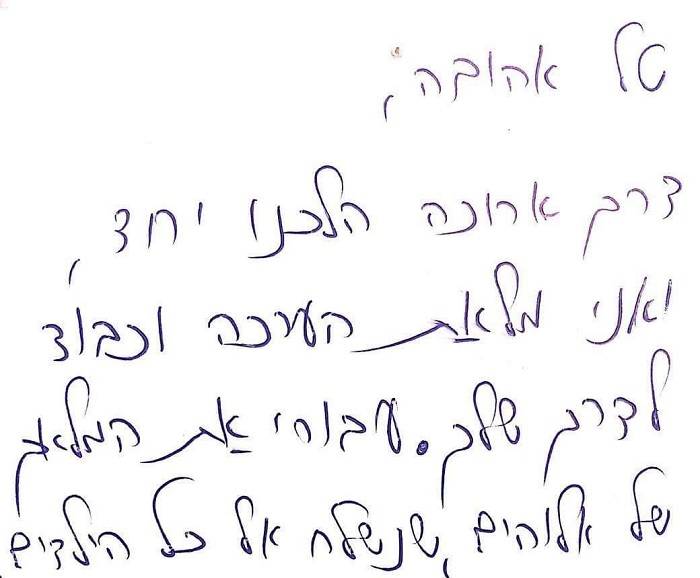 טל אהובה,
דרך ארוכה הלכנו יחד,
ואני מלאת הערכה וכבוד
לדרך שלך. עבורי את המלאך
של אלוהים, שנשלח אל כל הילדים